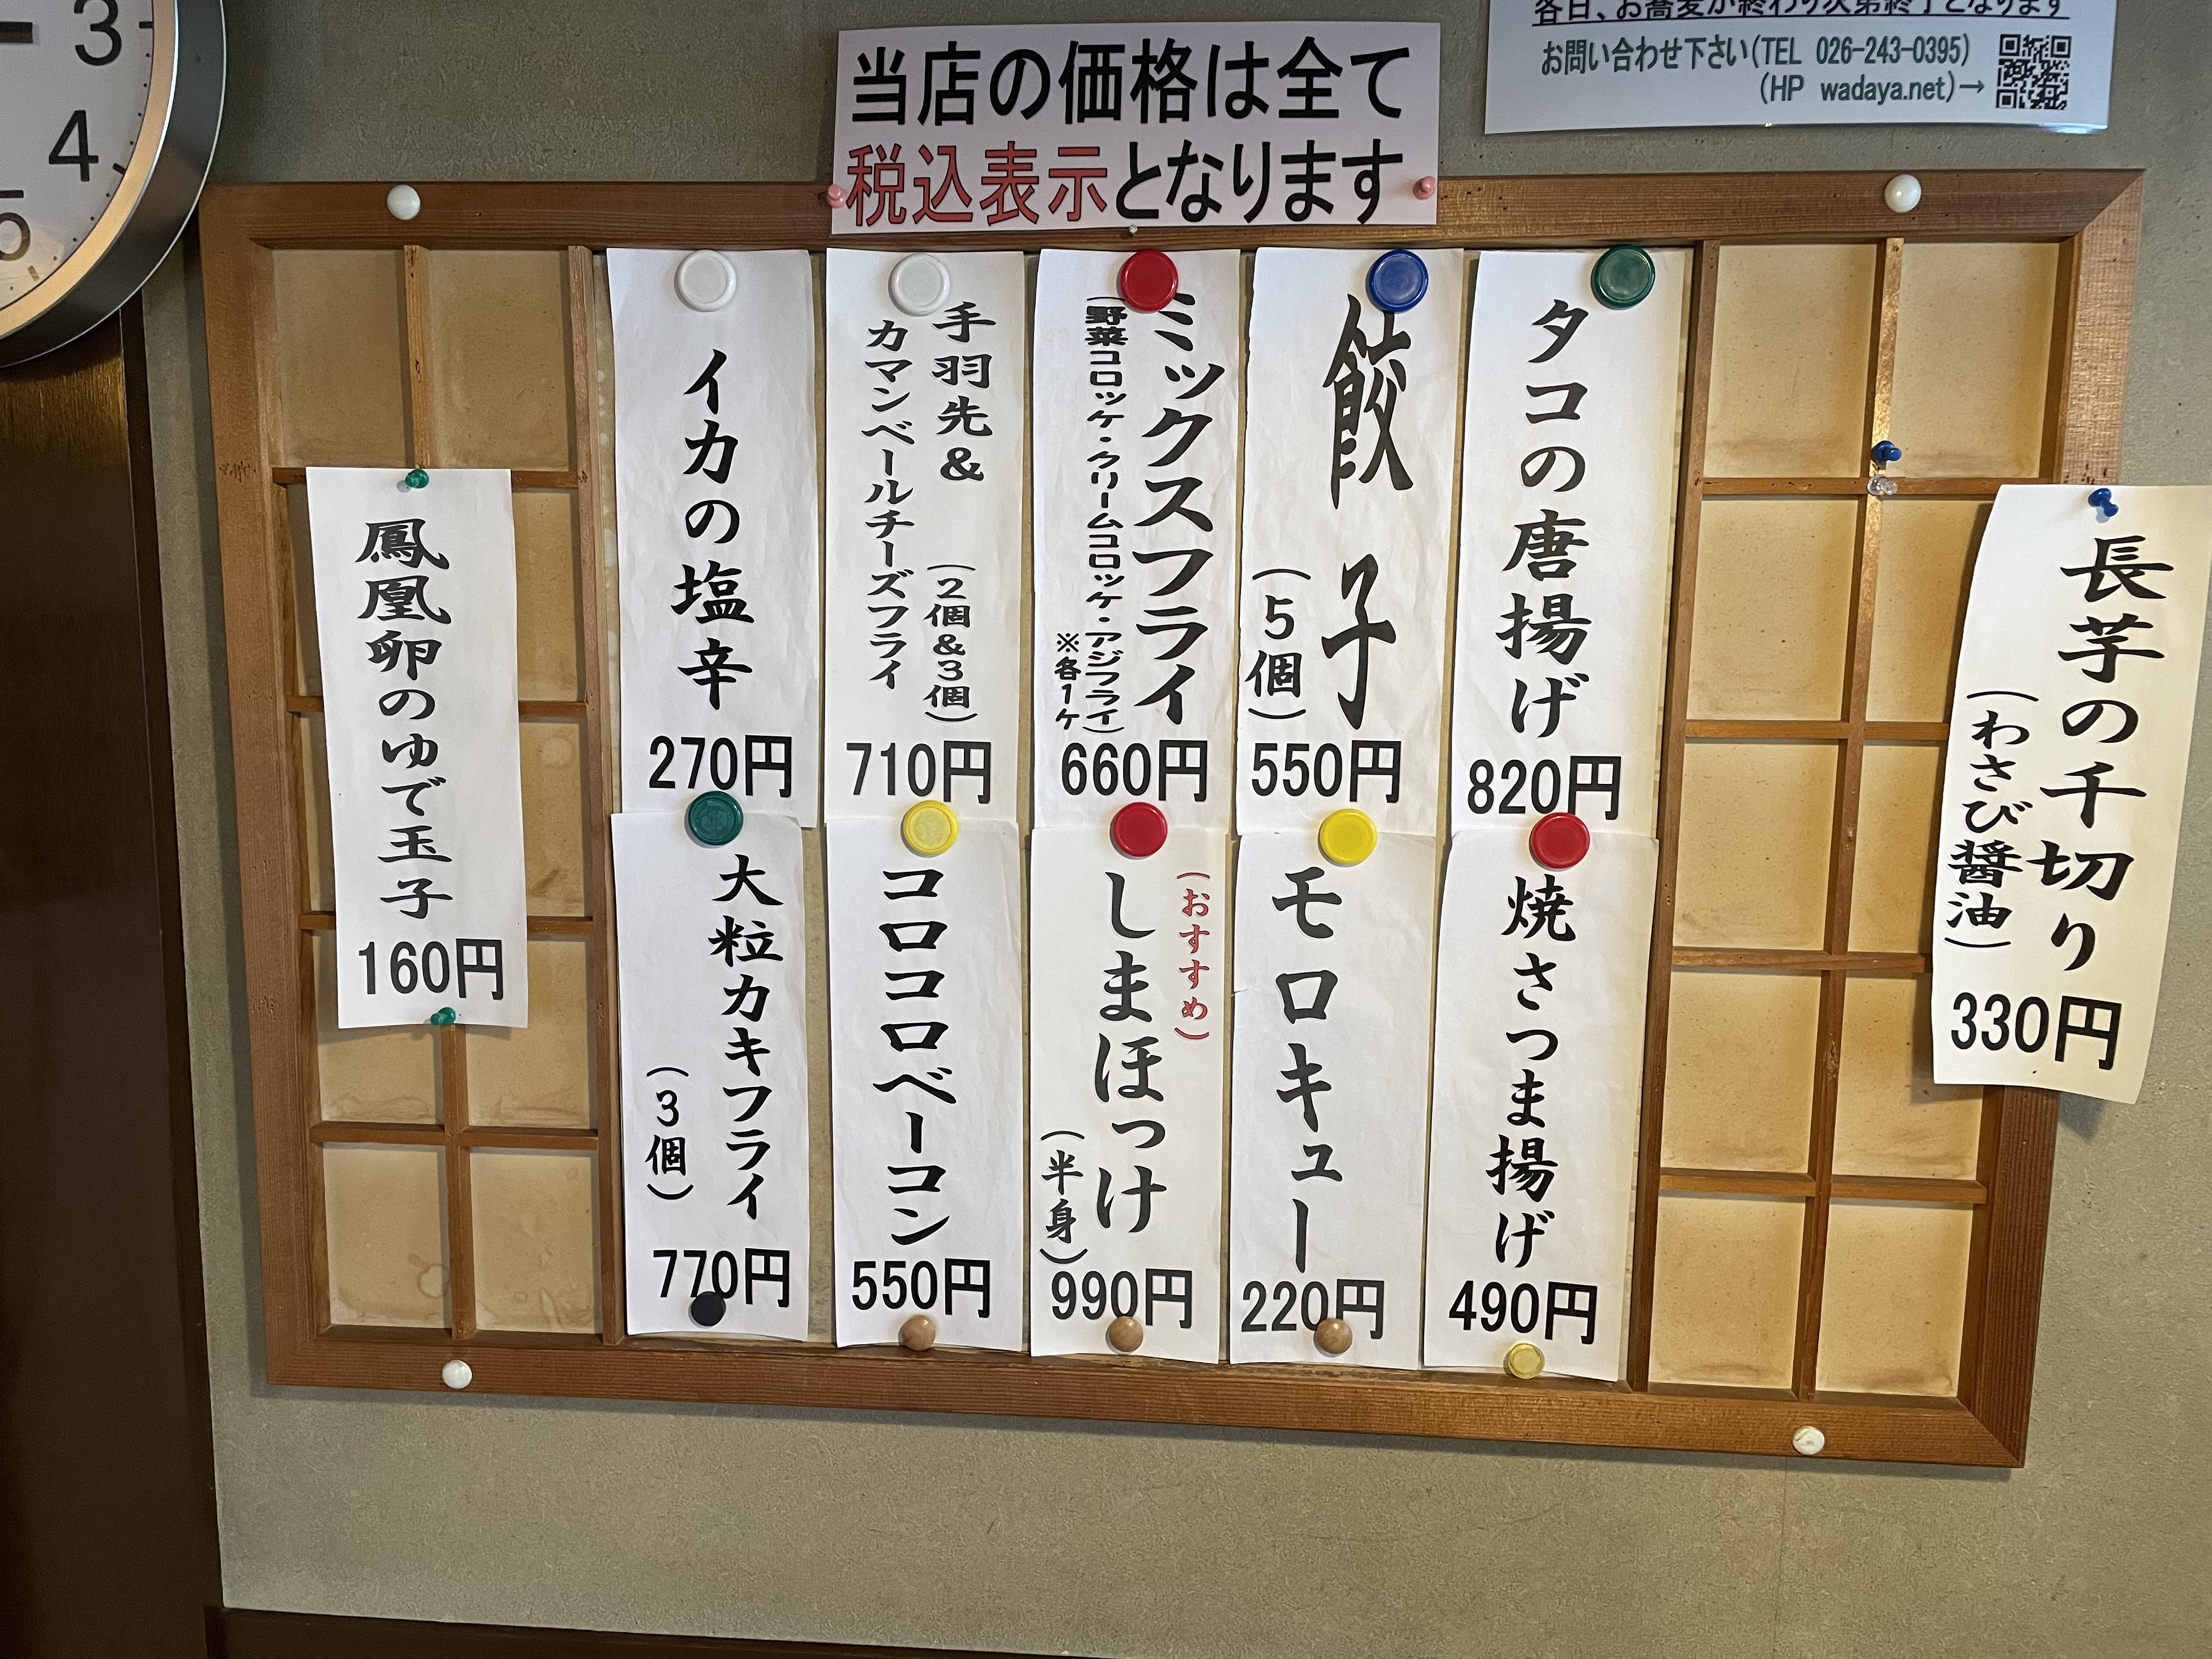 3
4
5
当店の価格は全て
税込表示となります
各日、お蕎麦が終わり次第終了となります
お問い合わせ下さい(TEL 026-243-0395)
(HP wadaya.net)→
長芋の千切り
(わさび醤油)
330円
タコの唐揚げ
820円
餃子
(5個)
550円
ミックスフライ
(野菜コロッケ・クリームコロッケ・アジフライ)
※各1ケ
660円
手羽先&
カマンベールチーズフライ
(2個&3個)
710円
イカの塩辛
270円
焼さつま揚げ
490円
モロキュー
220円
(おすすめ)
しまほっけ
(半身)
990円
コロコロベーコン
550円
大粒カキフライ
(3個)
770円
鳳凰卵のゆで玉子
160円